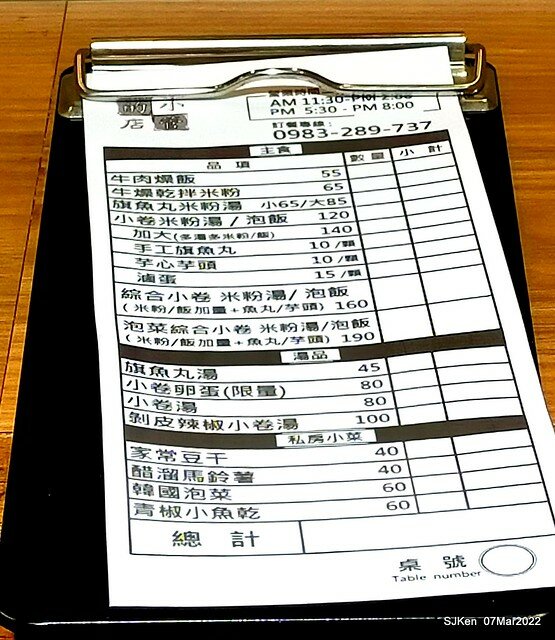 小
店
營業時間
AM 11:30-PM 2:00
PM 5:30 - PM 8:00
訂餐專線:
0983-289-737
主食
品 項 數量 小 計
牛肉燥飯 55
牛燥乾拌米粉 65
旗魚丸米粉湯 小65/大85
小卷米粉湯 / 泡飯 120
加大(多湯多米粉/飯) 140
手工旗魚丸 10 /顆
芋心芋頭 10 /顆
滷蛋 15 /顆
綜合小卷 米粉湯/ 泡飯
( 米粉/飯加量+魚丸/芋頭) 160
泡菜綜合小卷 米粉湯/泡飯
( 米粉/飯加量+魚丸/芋頭) 190
湯品
旗魚丸湯 45
小卷卵蛋(限量) 80
小卷湯 80
剝皮辣椒小卷湯 100
私房小菜
家常豆干 40
醋溜馬鈴薯 40
韓國泡菜 60
青椒小魚乾 60
總 計
桌 號
Table number
SJKen 07Mar2022